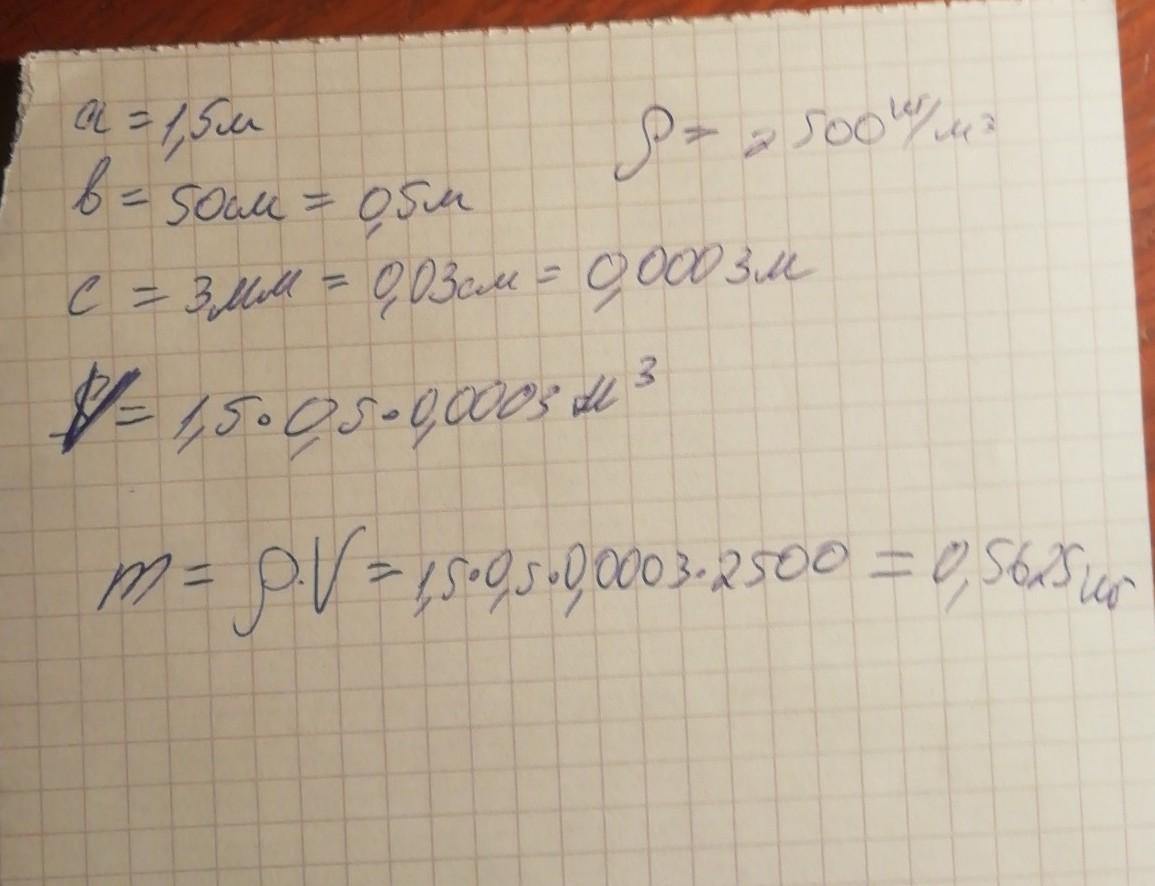 a = 1,5м
ρ = 2500 кг/м³
b = 50см = 0,5м
c = 3мм = 0,03см = 0,0003м
V = 1,5·0,5·0,0003 м³
m = ρ·V = 1,5·0,5·0,0003·2500 = 0,5625кг